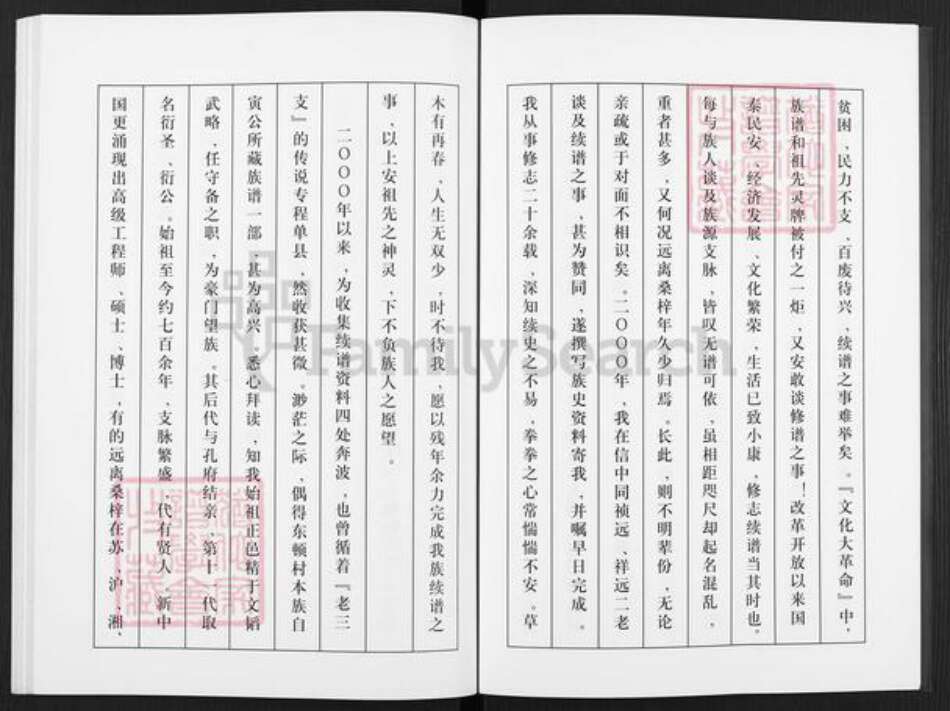 贫困、民力不支、百废待兴、续谱之事难举矣。『文化大革命』中，
族谱和祖先灵牌被付之一炬，又安敢谈修谱之事！改革开放以来国
泰民安、经济发展、文化繁荣，生活已致小康，修志续谱当其时也。
每与族人谈及族源支脉，皆叹无谱可依，虽相距咫尺却起名混乱，
重者甚多，又何况远离桑梓年久少归焉。长此，则不明辈份，无论
亲疏或于对面不相识矣。二〇〇〇年，我在信中同祯远、祥远二老
谈及续谱之事，甚为赞同，遂撰写族史资料寄我，并嘱早日完成。
我从事修志二十余载，深知续史之不易，拳拳之心常惴惴不安。草
木有再春，人生无双少，时不待我，愿以残年余力完成我族续谱之
事，以上安祖先之神灵，下不负族人之愿望。
二〇〇〇年以来，为收集续谱资料四处奔波，也曾循着『老三
支』的传说专程单县，然收获甚微。渺茫之际，偶得东顿村本族自
寅公所藏族谱一部，甚为高兴。悉心拜读，知我始祖正邑精于文韬
武略，任守备之职，为豪门望族。其后代与孔府结亲，第十一代取
名衍圣、衍公。始祖至今约七百余年，支脉繁盛，代有贤人，新中
国更涌现出高级工程师、硕士、博士，有的远离桑梓在苏、沪、湘、
FamilySearch